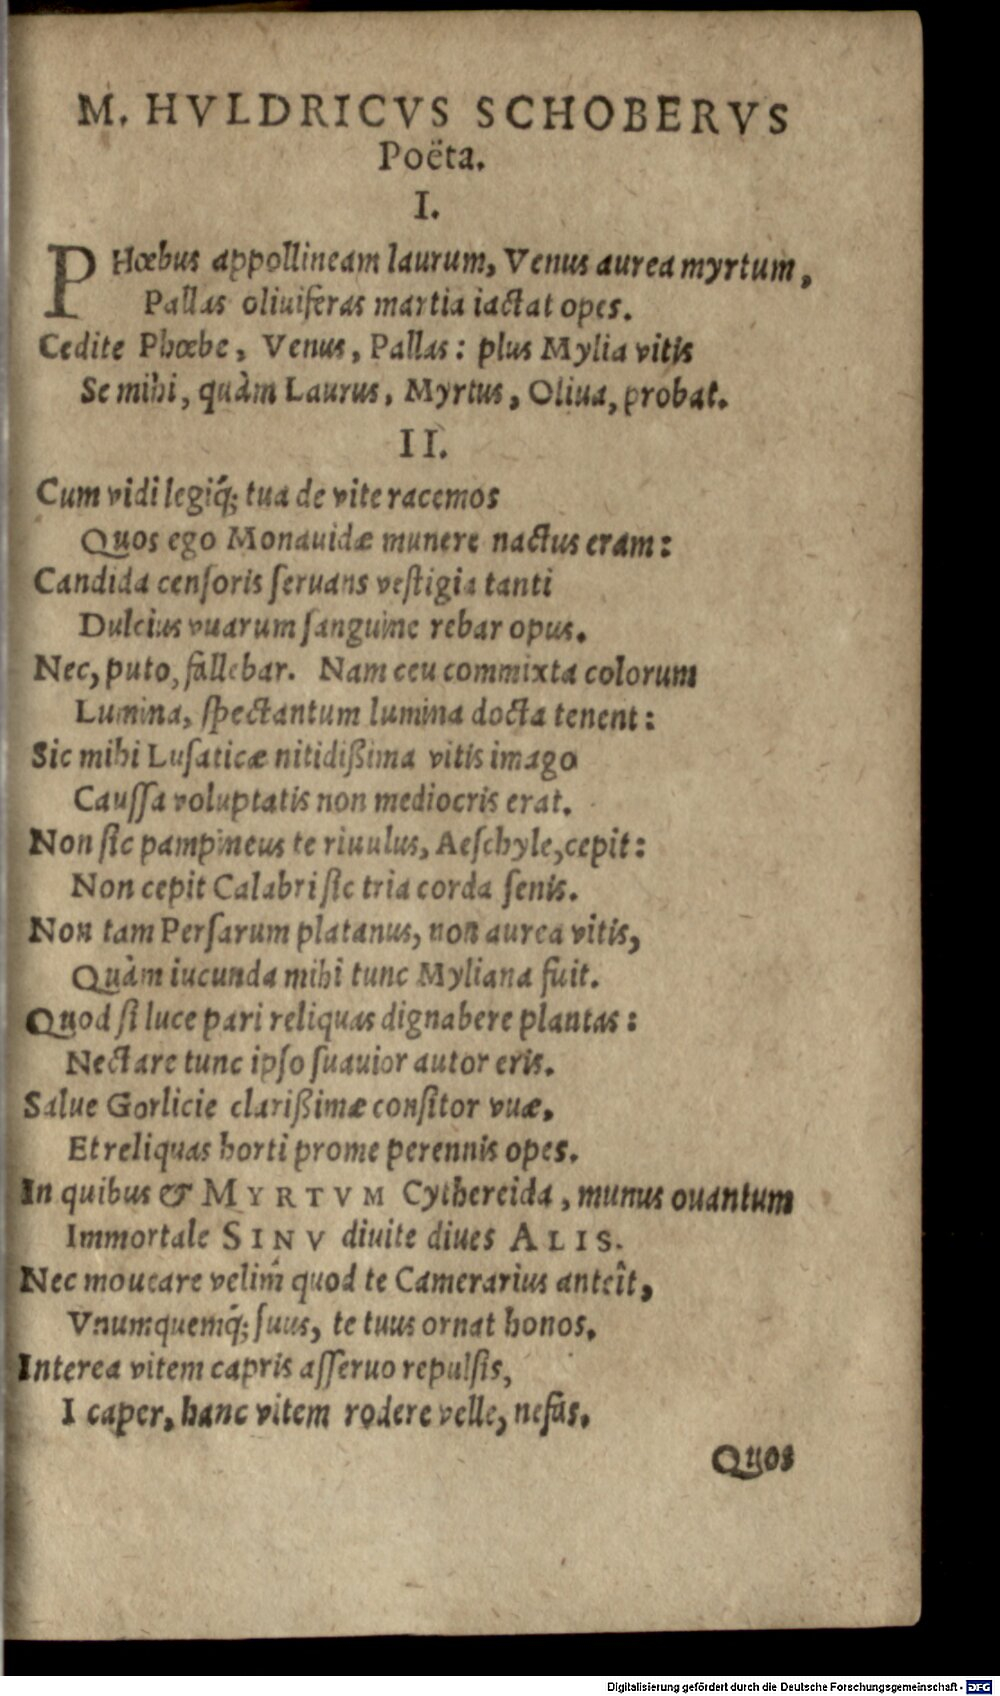 M. HVLDRICVS SCHOBERVS
Poëta.
I.
PHœbus appollineam laurum, Venus aurea myrtum,
Pallas oliuiferas martia iactat opes.
Cedite Phœbe, Venus, Pallas: plus Mylia vitis
Se mihi, quàm Laurus, Myrtus, Oliua, probat.
II.
Cum vidi legiq́; tua de vite racemos
Quos ego Monauidæ munere nactus eram:
Candida censoris seruans vestigia tanti
Dulcius vuarum sanguine rebar opus.
Nec, puto, fallebar. Nam ceu commixta colorum
Lumina, spectantum lumina docta tenent:
Sic mihi Lusaticæ nitidißima vitis imago
Caussa voluptatis non mediocris erat.
Non sic pampineus te riuulus, Aeschyle, cepit:
Non cepit Calabri sic tria corda senis.
Non tam Persarum platanus, non aurea vitis,
Quàm iucunda mihi tunc Myliana fuit.
Quod si luce pari reliquas dignabere plantas:
Nectare tunc ipso suauior autor eris.
Salue Gorlicie clarißimæ consitor vuæ,
Et reliquas horti prome perennis opes.
In quibus & MYRTVM Cythereida, munus ouantum
Immortale SINV diuite diues ALIS.
Nec moueare velim̃ quod te Camerarius anteît,
Vnumquemq́; suus, te tuus ornat honos.
Interea vitem capris asseruo repulsis,
I caper, hanc vitem rodere velle, nefas.
Quos
Digitalisierung gefördert durch die Deutsche Forschungsgemeinschaft - DFG